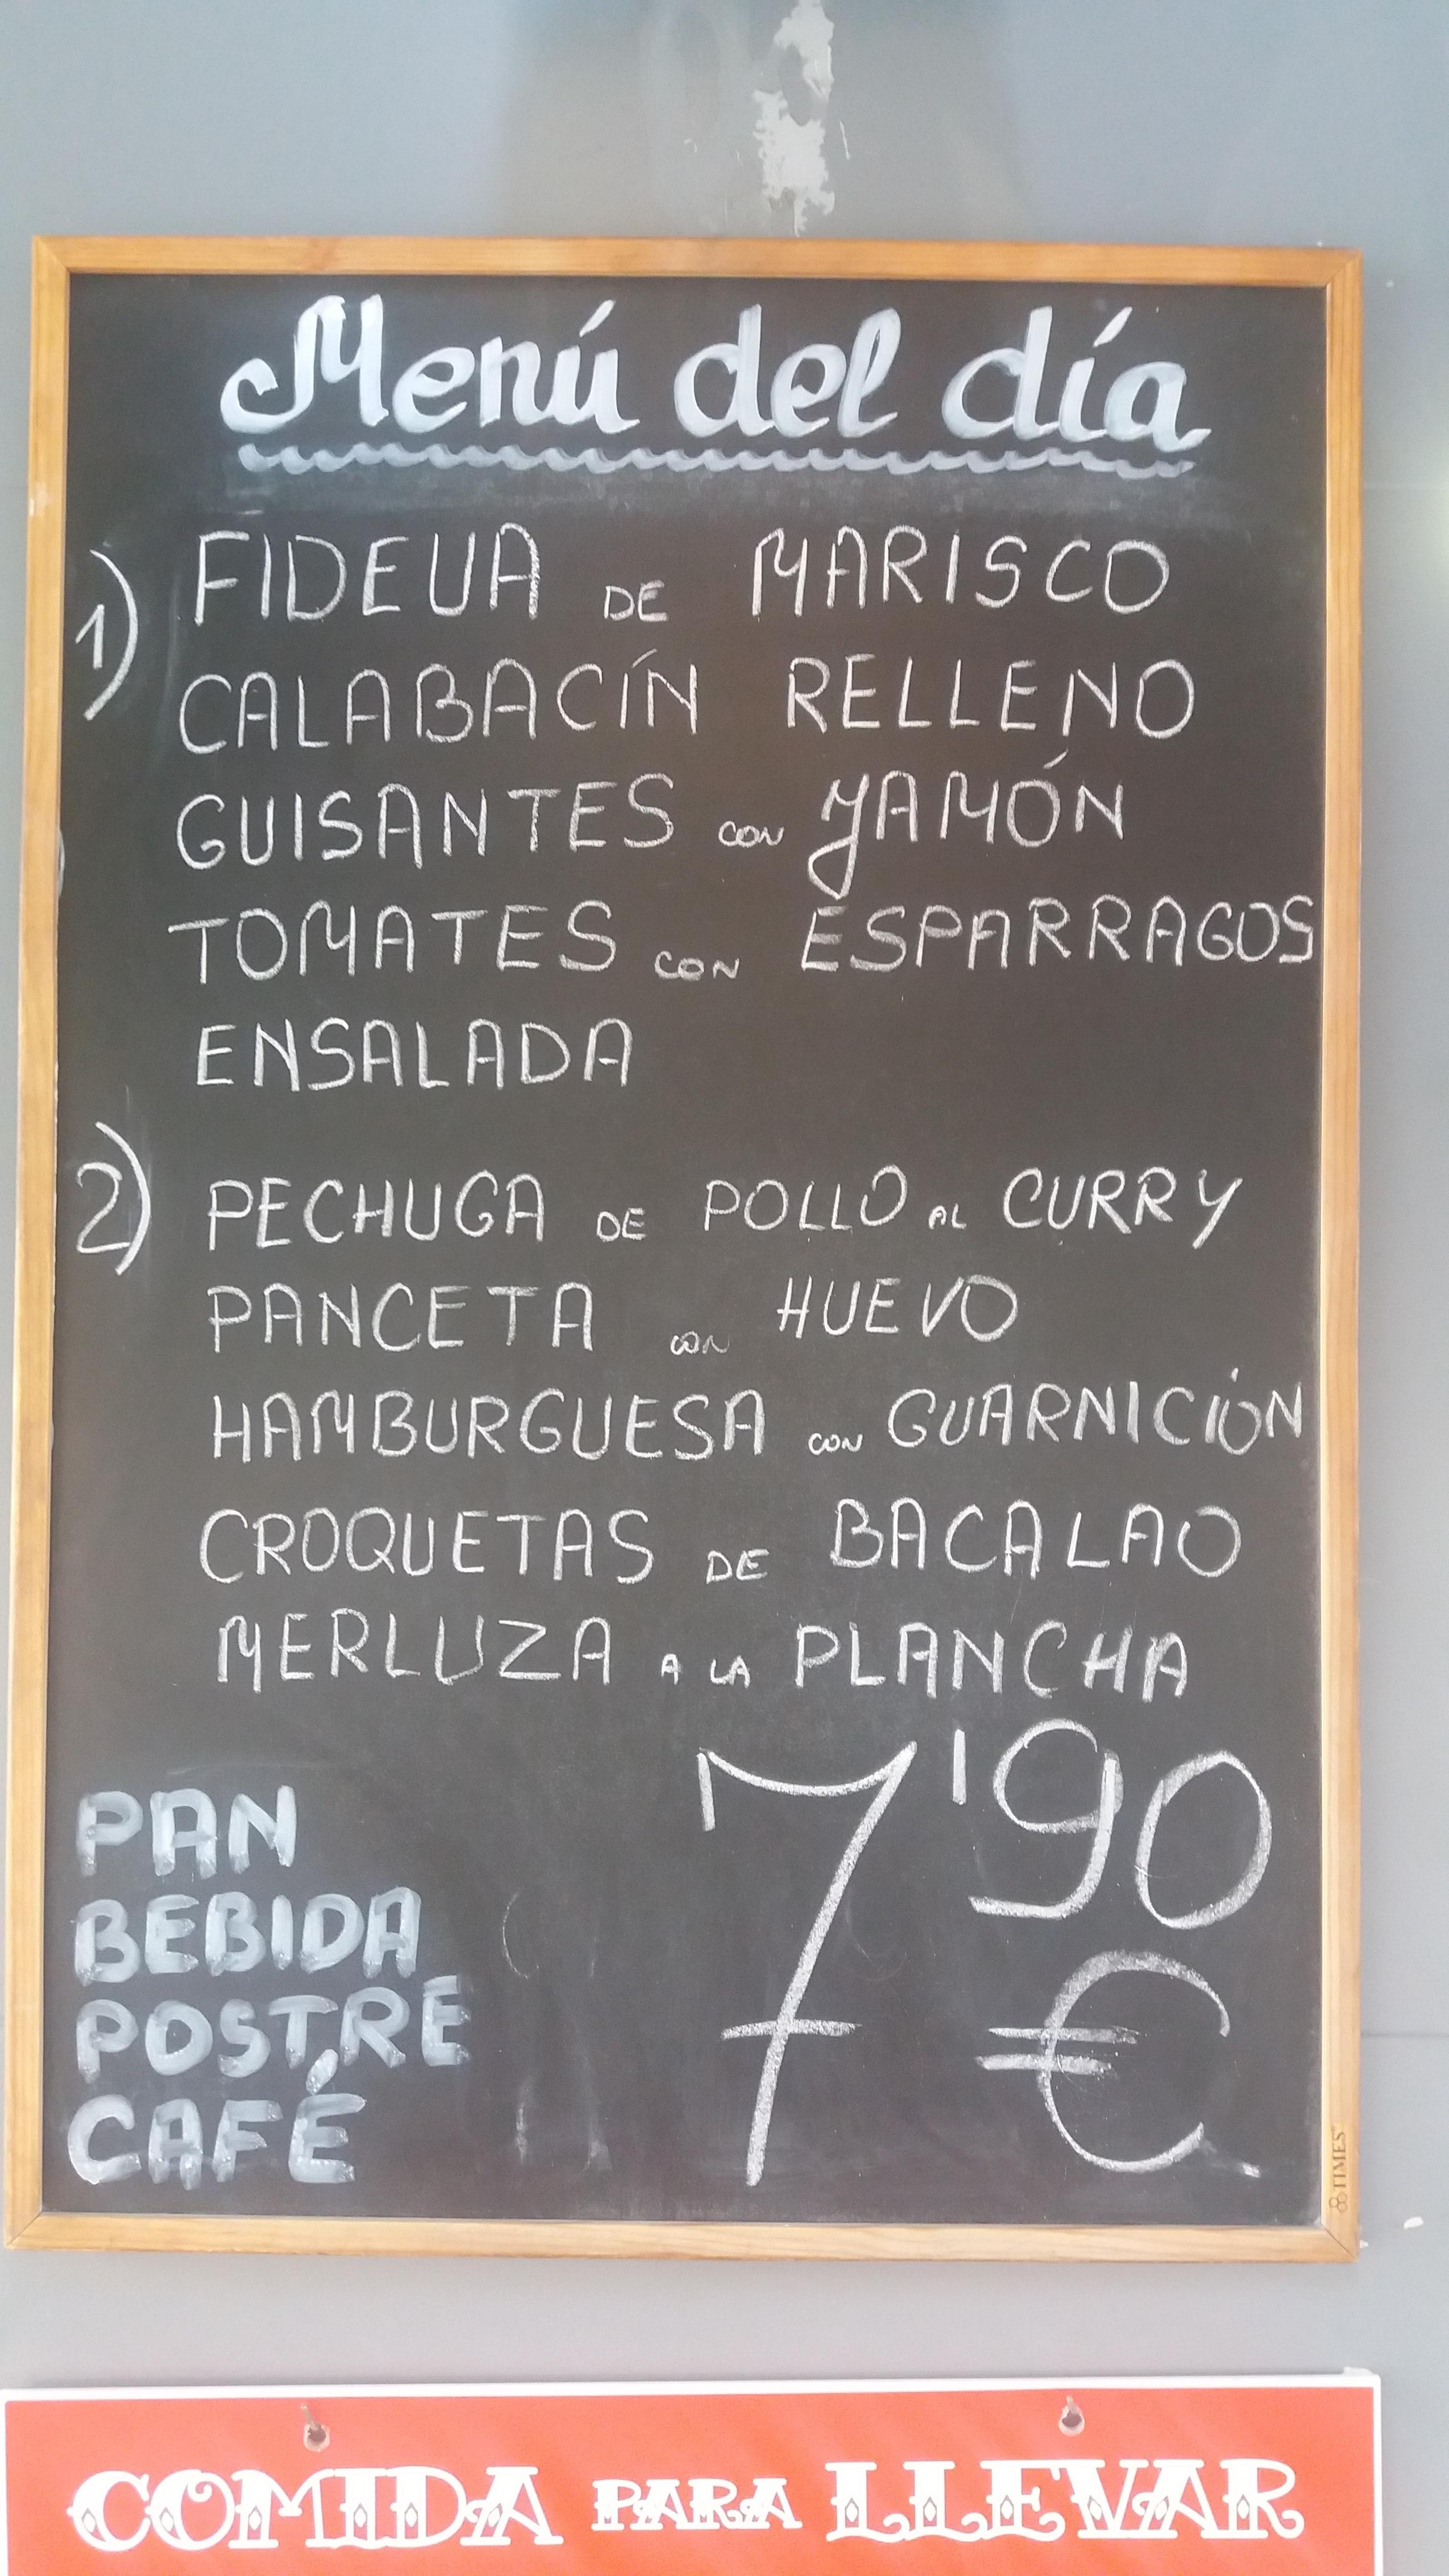 Menú del día
1) FIDEUA DE MARISCO
CALABACÍN RELLENO
GUISANTES CON JAMÓN
TOMATES CON ESPARRAGOS
ENSALADA
2) PECHUGA DE POLLO AL CURRY
PANCETA CON HUEVO
HAMBURGUESA CON GUARNICIÓN
CROQUETAS DE BACALAO
MERLUZA A LA PLANCHA
7'90 €
PAN
BEBIDA
POSTRE
CAFÉ
TIMES
COMIDA PARA LLEVAR